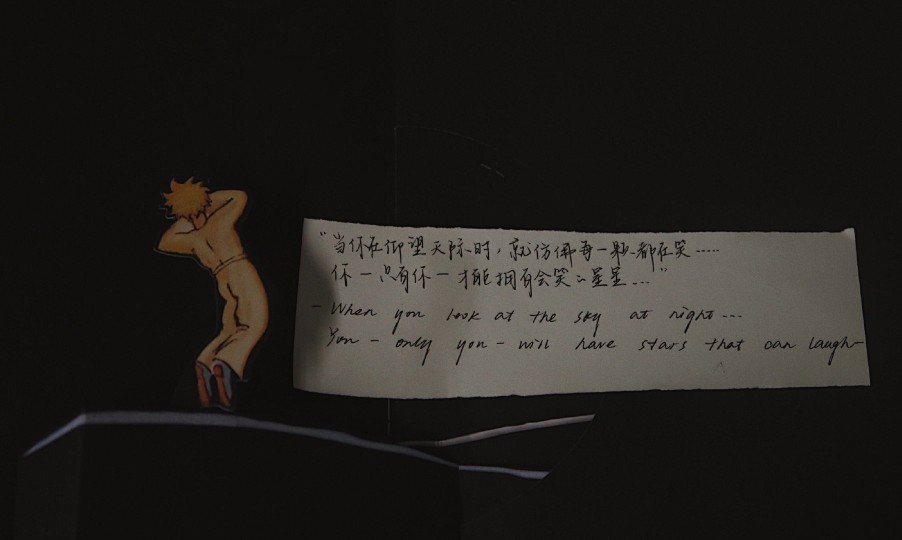 “当你在仰望天际时，就仿佛每一颗都在笑……
你一只有你一才能拥有会笑的星星……”
- When you look at the sky at night ---
You - only you - will have stars that can laugh-